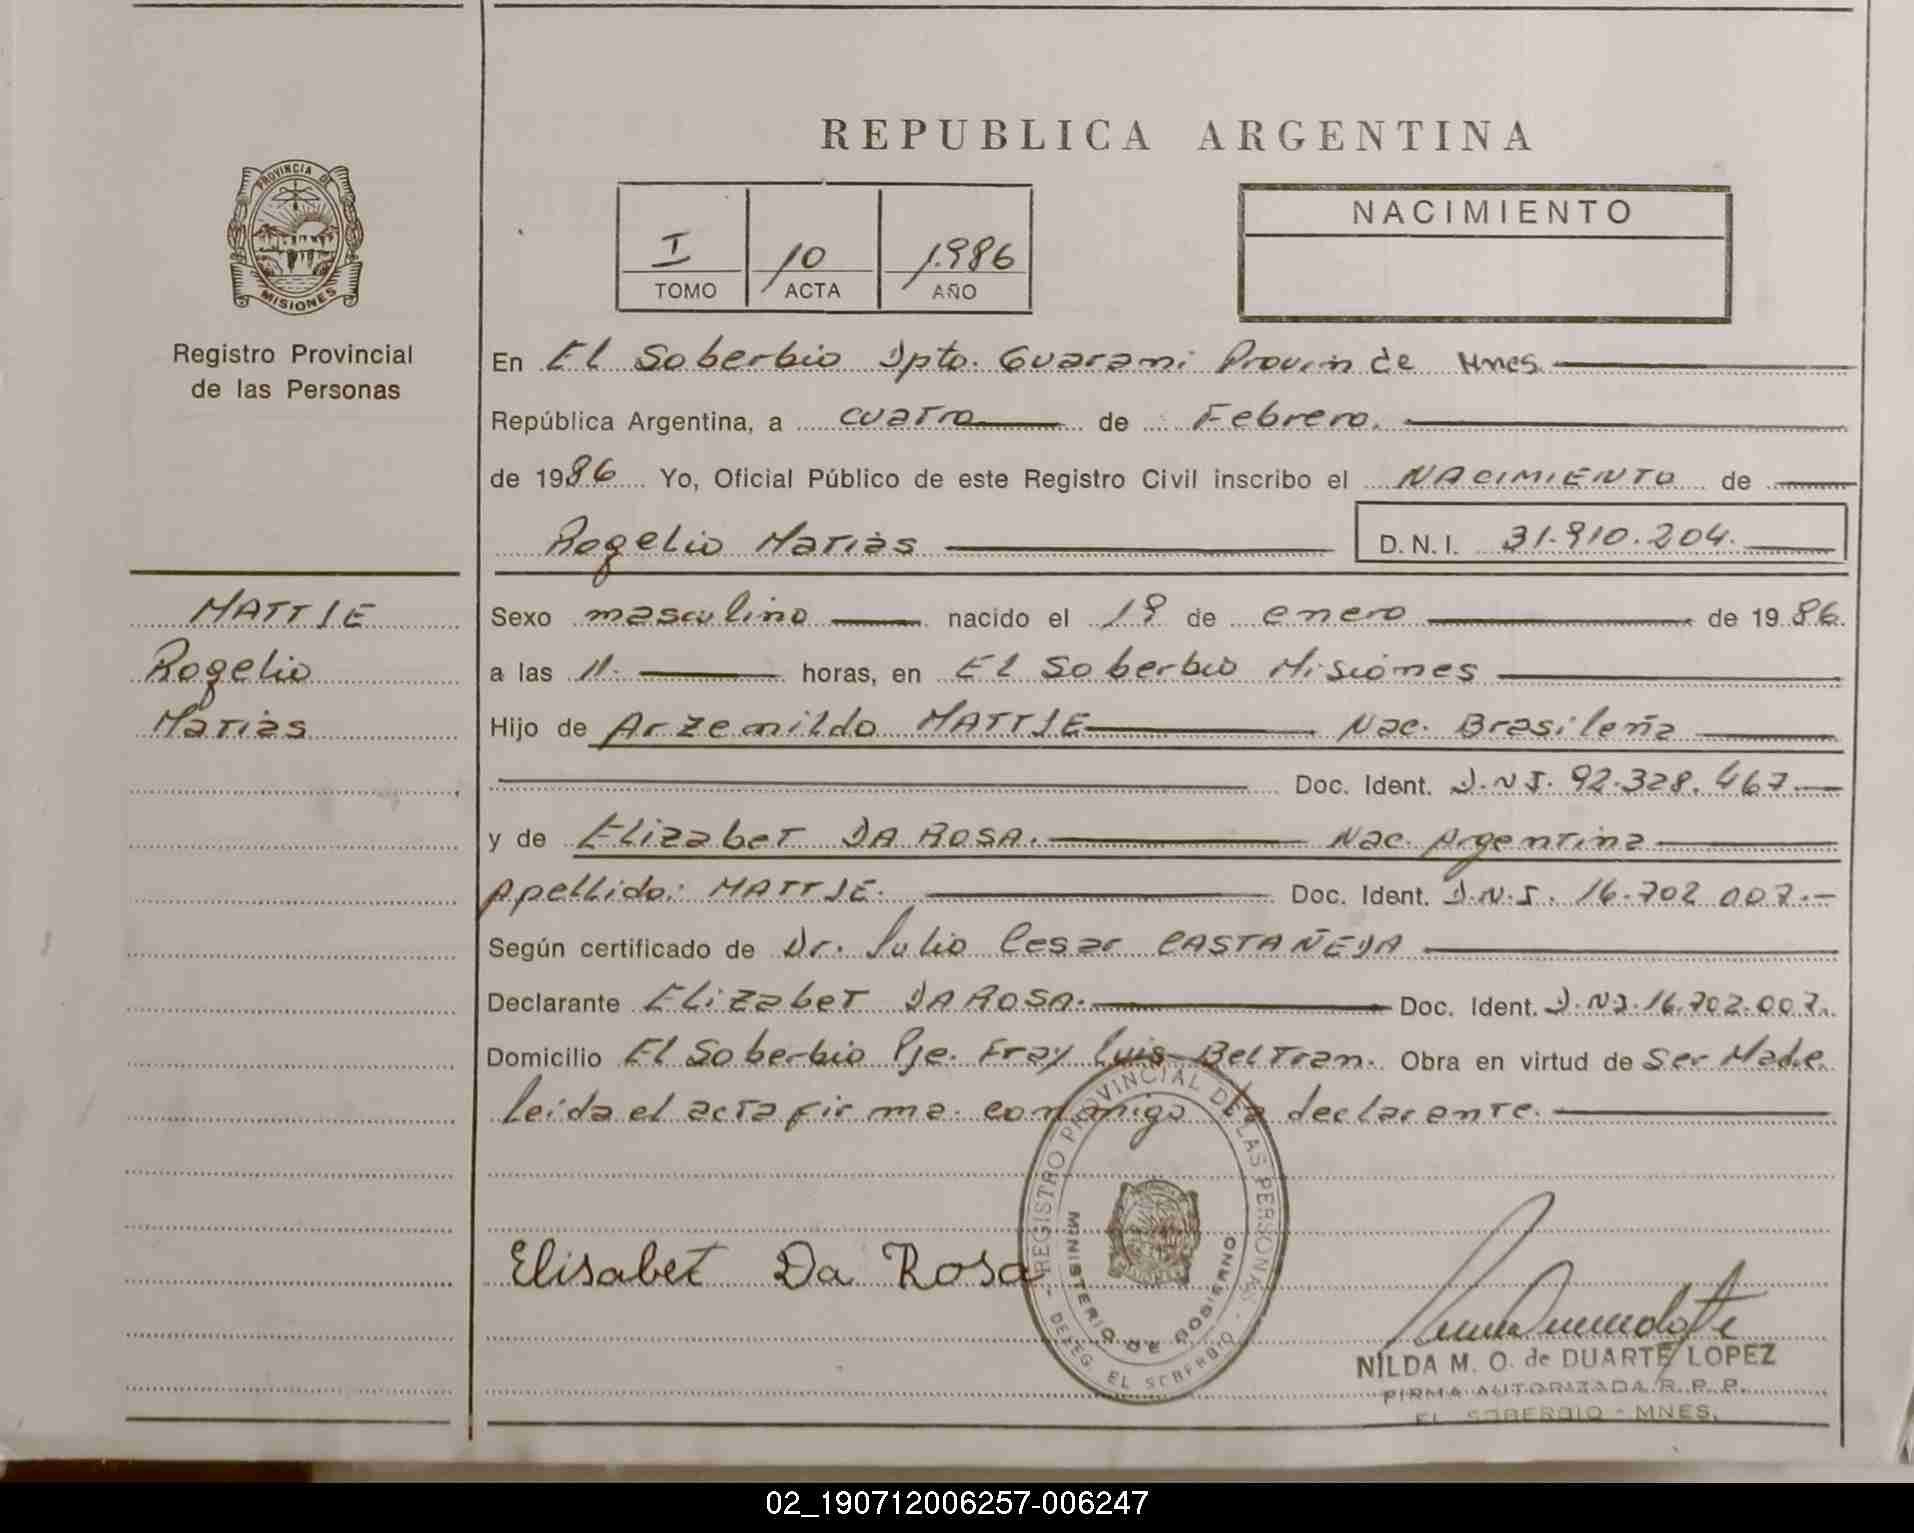 REPUBLICA ARGENTINA
PROVINCIA DE
MISIONES
Registro Provincial
de las Personas
I 10 1.986
TOMO ACTA AÑO
NACIMIENTO
En El Soberbio Dpto. Guarani Provin de Mnes.
República Argentina, a cuatro de Febrero.
de 1986 Yo, Oficial Público de este Registro Civil inscribo el NACIMIENTO de
Rogelio Matias D.N.I. 31.910.204.
MATTJE
Rogelio
Matias
Sexo masculino nacido el 19 de enero de 1986.
a las 11. horas, en El Soberbio Misiones
Hijo de Arzemildo MATTJE Nac. Brasileña
Doc. Ident. D.N.I. 92.328.467.
y de Elizabet DA ROSA. Nac. Argentina
Apellido: MATTJE. Doc. Ident. D.N.I. 16.702.007.-
Según certificado de Dr. Julio Cesar CASTAÑEDA
Declarante Elizabet DA ROSA. Doc. Ident. D.N.I. 16.702.007.
Domicilio El Soberbio Pje. Fray Luis Beltran. Obra en virtud de Ser Madre.
leida el acta firma conmigo la declarante.
REGISTRO PROVINCIAL DE LAS PERSONAS
MINISTERIO DE GOBIERNO
- DELEG. EL SOBERBIO -
Elisabet Da Rosa
NILDA M. O. de DUARTE LOPEZ
FIRMA AUTORIZADA R. P. P.
EL SOBERBIO - MNES.
02_190712006257-006247